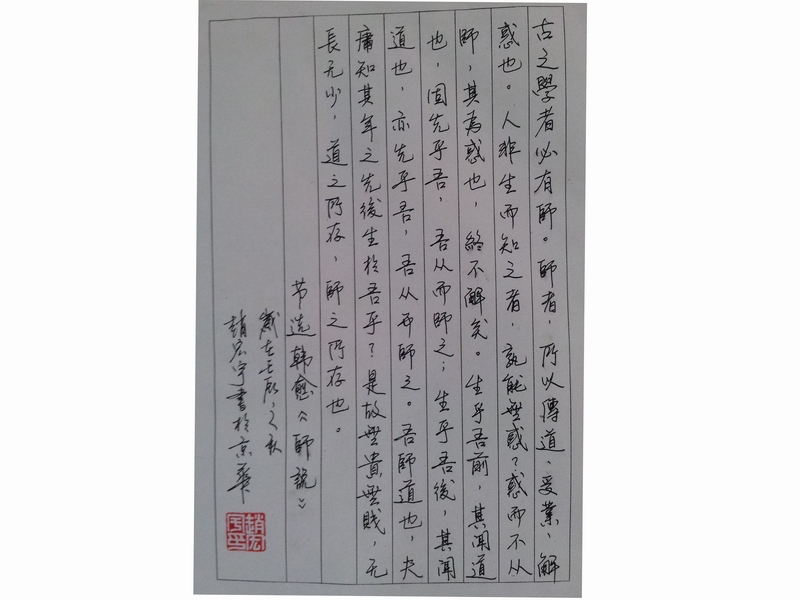 古之學者必有師。師者，所以傳道、受業、解
惑也。人非生而知之者，孰能無惑？惑而不从
師，其為惑也，終不解矣。生乎吾前，其闻道
也，固先乎吾，吾从而師之；生乎吾後，其闻
道也，亦先乎吾，吾从而師之。吾師道也，夫
庸知其年之先後生於吾乎？是故無貴無賤，无
長无少，道之所存，師之所存也。
节选韩愈《師說》
歲在壬辰之秋
趙宏宇書於京華